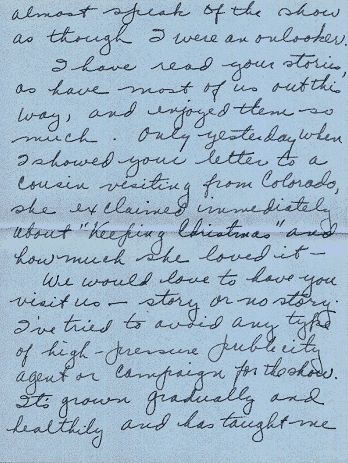 almost speak of the show
as though I were an onlooker.
I have read your stories,
as have most of us out this
way, and enjoyed them so
much. Only yesterday when
I showed your letter to a
cousin visiting from Colorado,
she exclaimed immediately
about "Keeping Christmas" and
how much she loved it -
We would love to have you
visit us - story or no story.
I've tried to avoid any type
of high-pressure publicity
agent or campaign for the show.
It's grown gradually and
healthily and has taught me